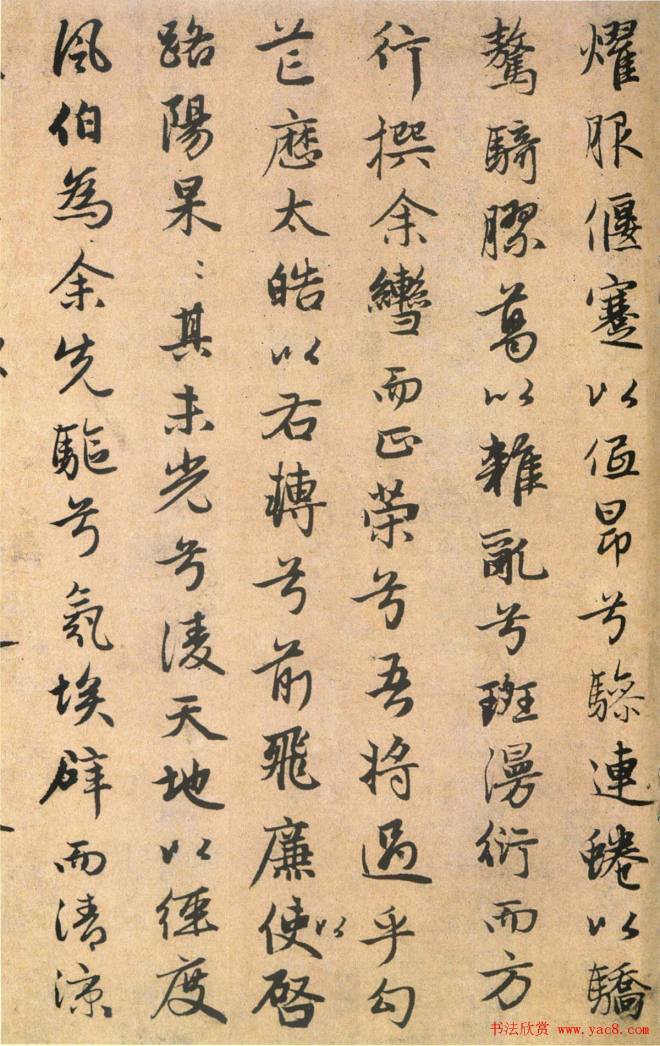 耀服偃蹇以低昂兮驂連蜷以驕
驁騎膠葛以雜亂兮斑漫衍而方
行撰余轡而正策兮吾將過乎勾
芒歷太皓以右轉兮前飛廉使以啓
路陽杲〻其未光兮淩天地以徑度
風伯為余先驅兮氛埃辟而清涼
书法欣赏 www.yac8.com